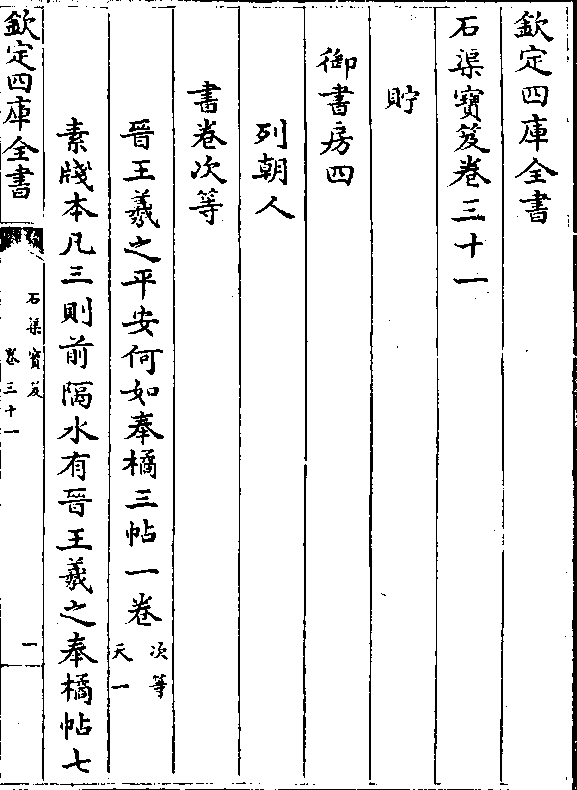 欽定四庫全書
石渠寶笈卷三十一
貯
御書房四
列朝人
書卷次等
晉王羲之平安何如奉橘三帖一卷 次等 天一
素牋本凡三則前隔水有晉王羲之奉橘帖七
欽定四庫全書
石渠寶笈
卷三十一
一